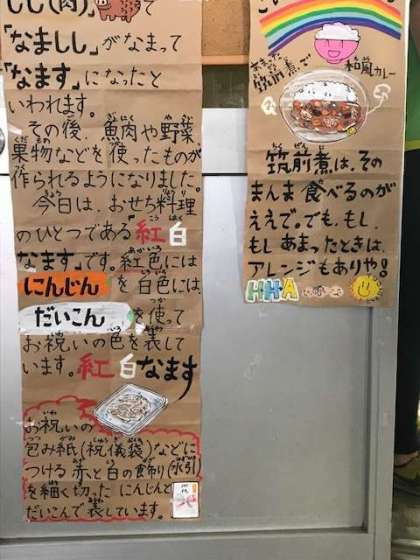 しし(肉)で
「なましし」がなまって
「なます」になったと
いわれます。
その後、魚肉や野菜
果物などを使ったものが
作られるようになりました。
今日は、おせち料理
のひとつである紅白
なます」です。紅色には
にんじんを白色には、
だいこんを使って
お祝いの色を表して
います。紅白なます
お祝いの
包み紙(祝儀袋)などに
つける赤と白の飾り(水引)
を細く切ったにんじんと
だいこんで表しています。
筑前煮で
和風カレー
筑前煮は、その
まんま食べるのが
ええで。でも、もし、
もしあまったときは、
アレンジもありや!
HHA